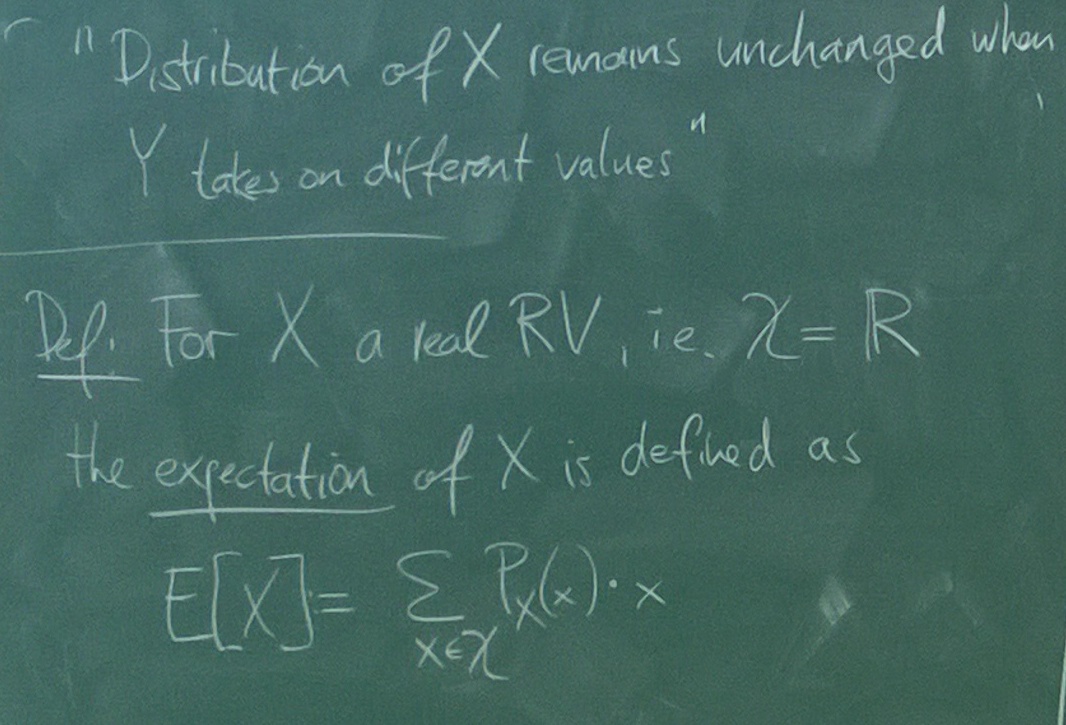 "Distribution of X remains unchanged when
Y takes on different values"
Def. For X a real RV, i.e. 𝒳 = ℝ
the expectation of X is defined as
E[X] := ∑ P_X(x) · x
x∈𝒳